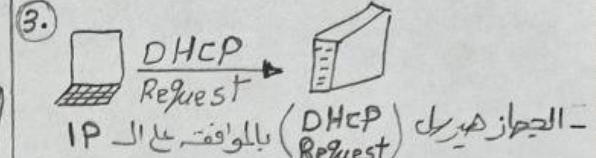 3.
DHCP
Request
- الجهاز هيرسل (DHCP Request) بالموافقة على ال IP